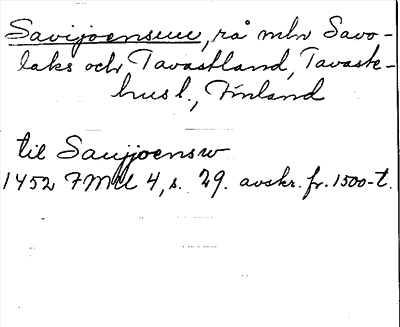 Savijoensuu, rå mln Savo-
laks och Tavastland, Tavaste-
husl., Finland
til Saujjoensw
1452 FMU 4, s. 29. avskr. fr. 1500-t.